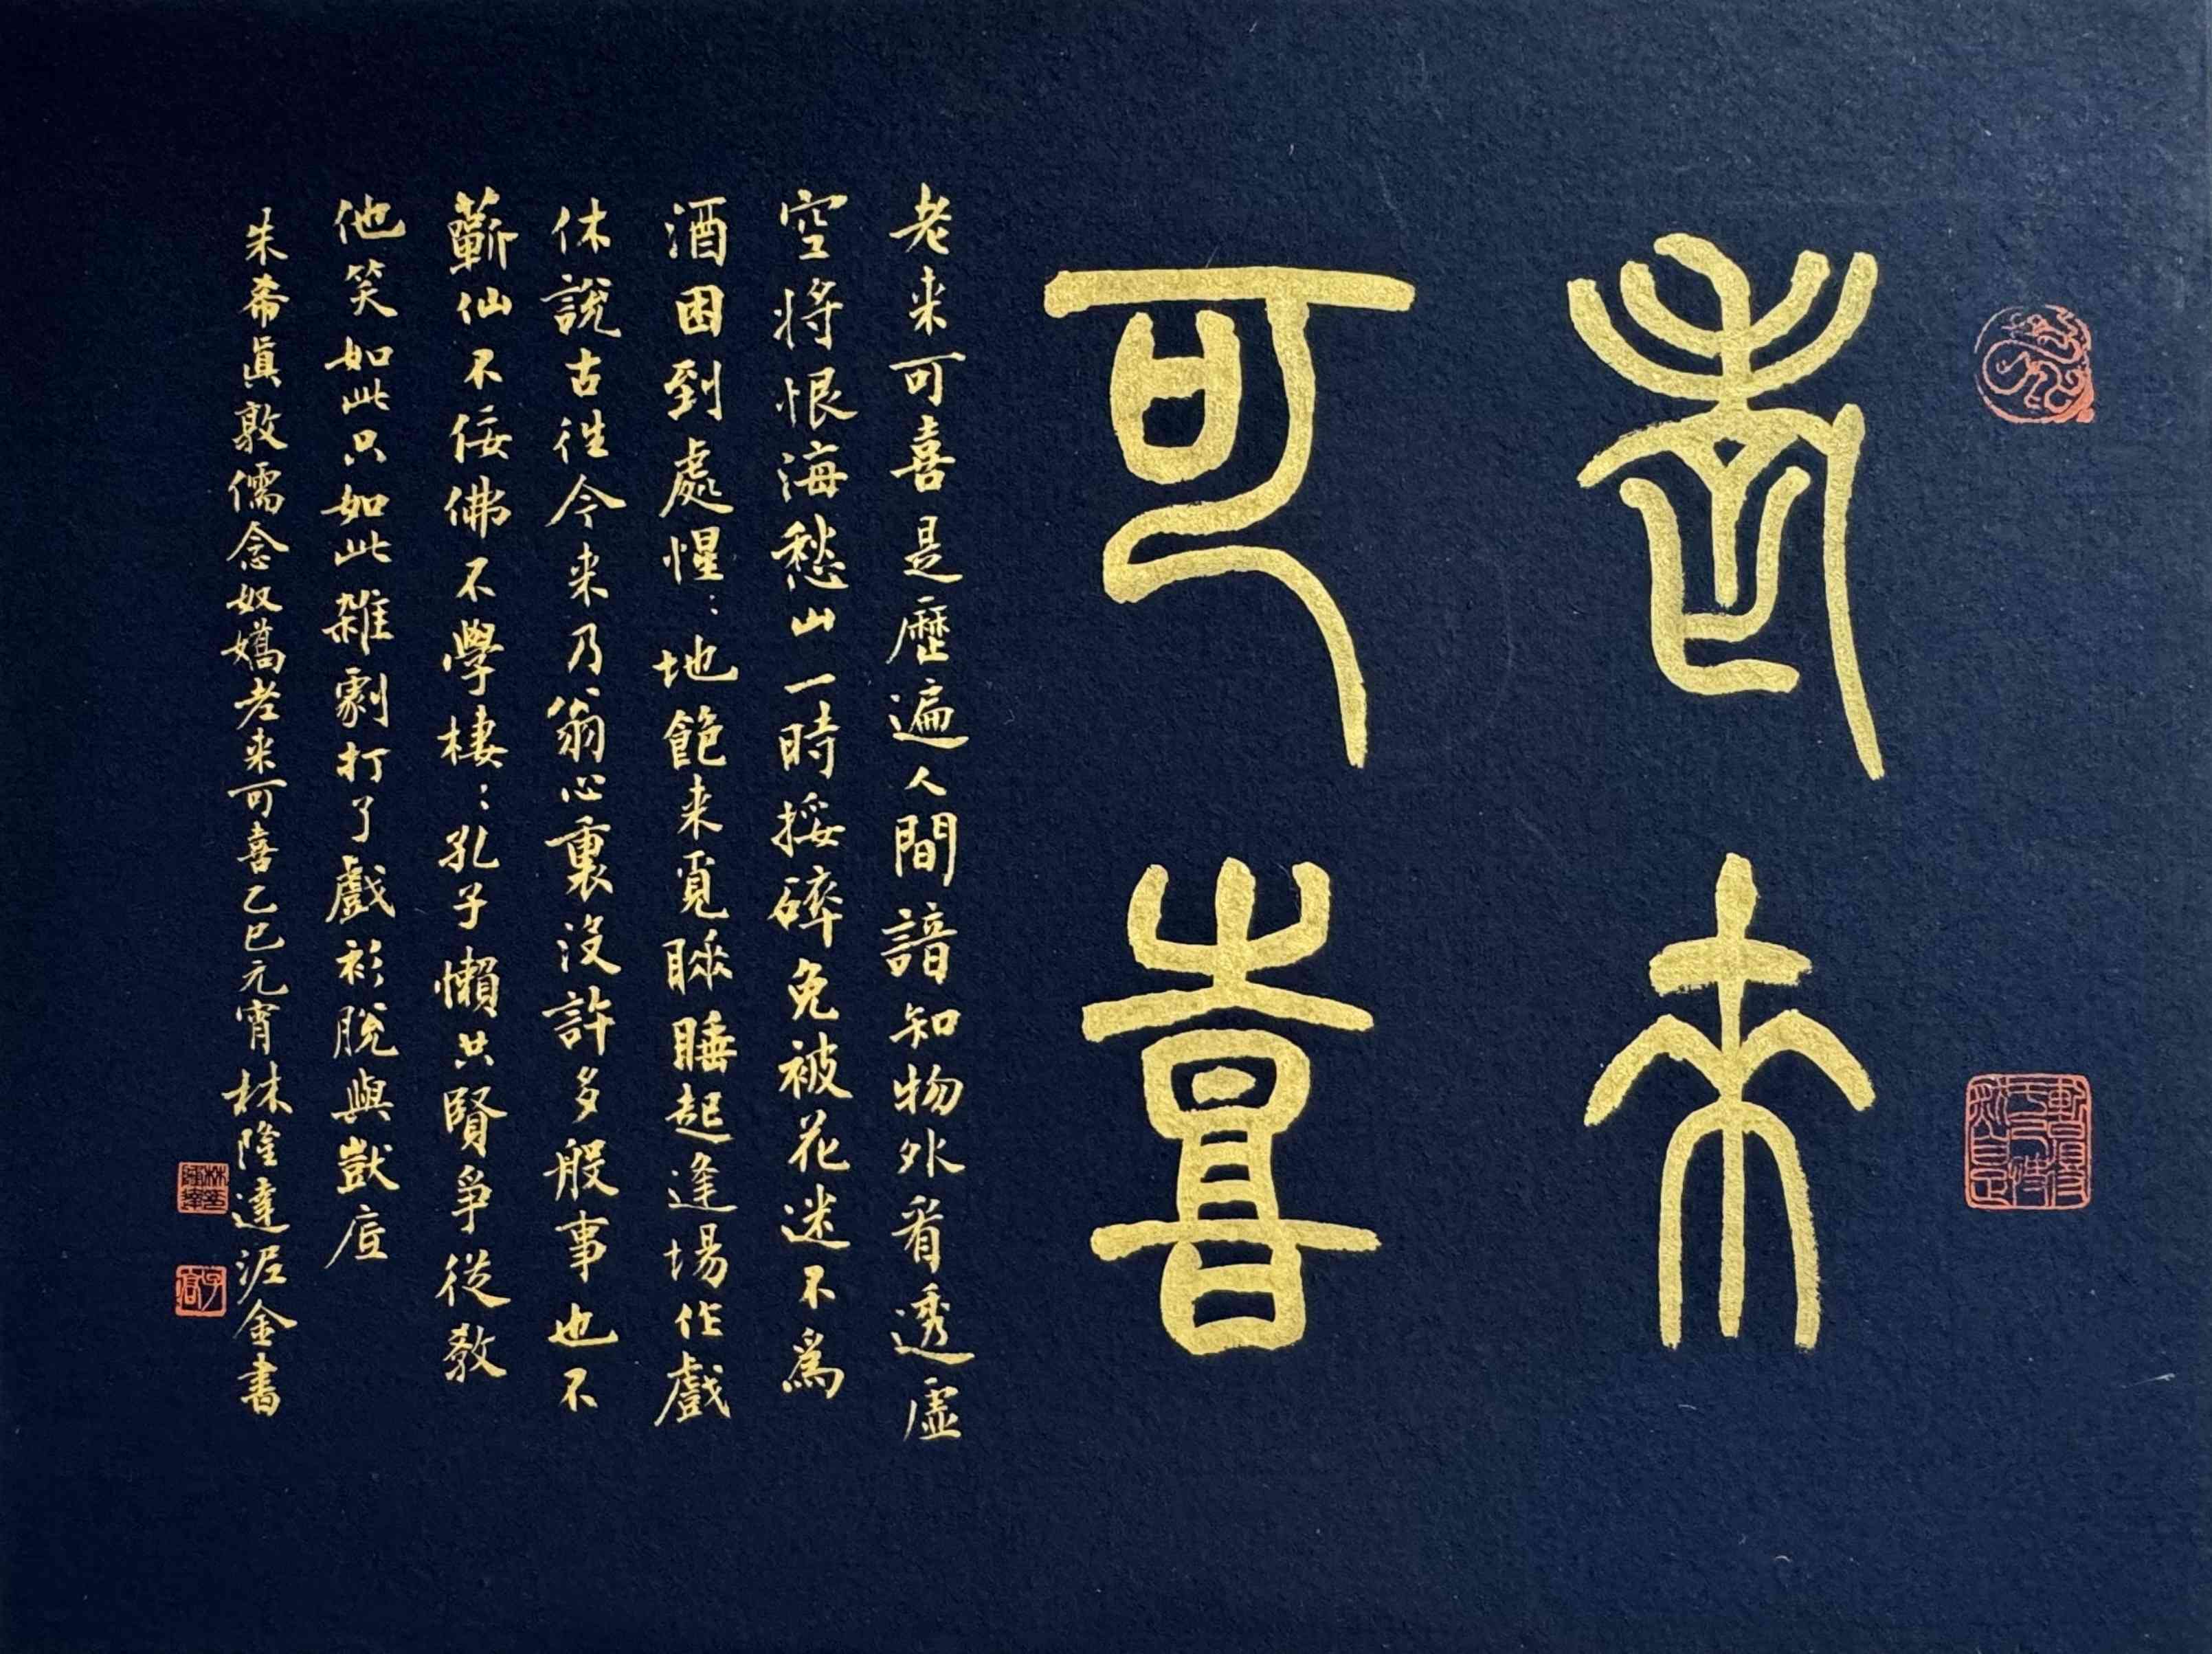 老来
可喜
老来可喜是歷遍人間諳知物外看透虛
空将恨海愁山一時挼碎免被花迷不為
酒困到處惺:地飽来覓睡睡起逢場作戲
休說古往今来乃翁心裏沒許多般事也不
蘄仙不佞佛不學棲:孔子懶共賢爭從教
他笑如此只如此雜劇打了戲衫脫與獃底
朱希真敦儒念奴嬌老来可喜乙巳元宵林隆達泥金書
林隆達
子高